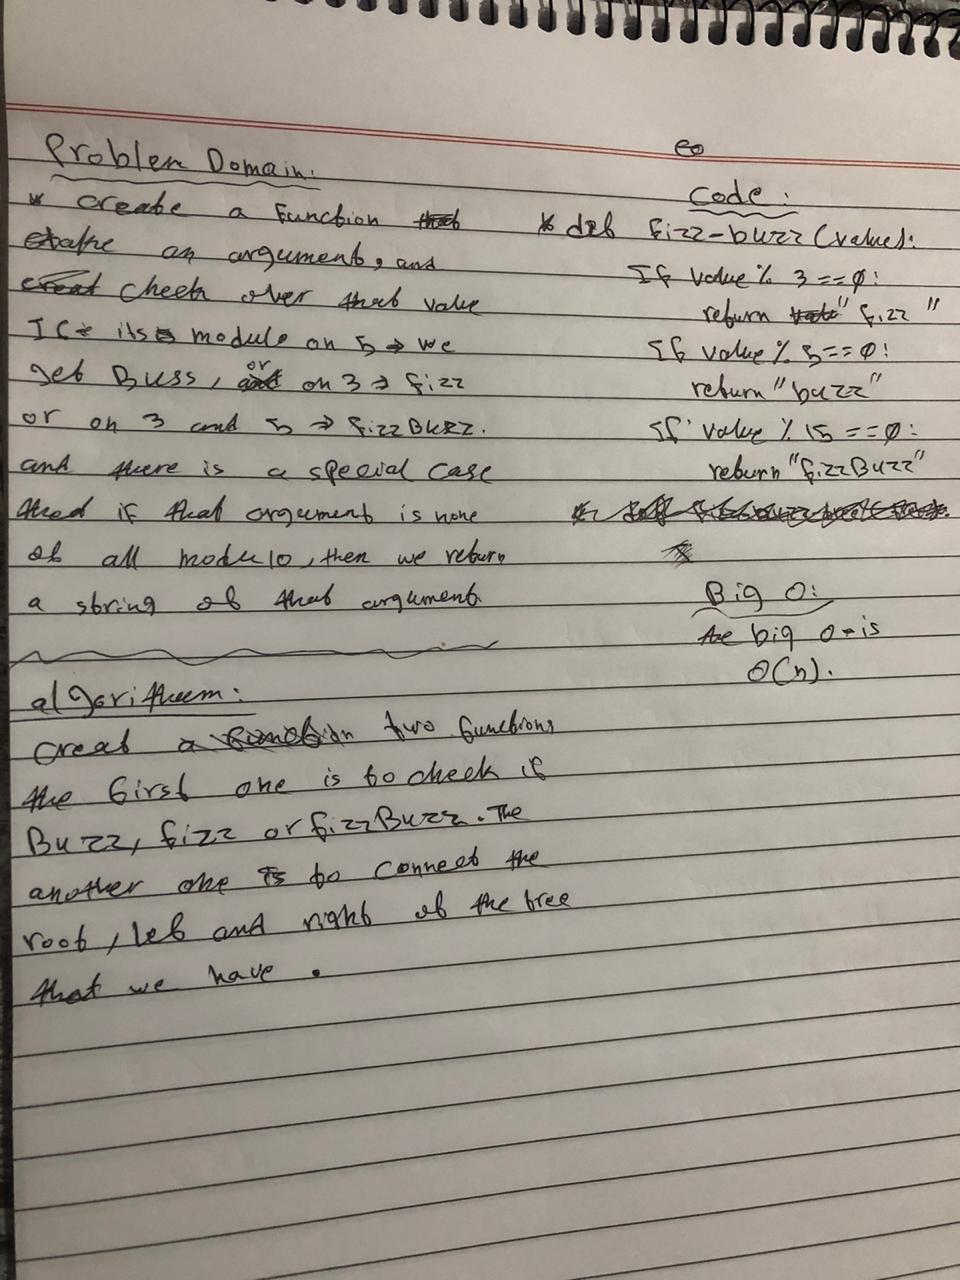 Problem Domain:
* create a function
take an argument, and
check over that value
If its module on 5 → we
get Buss, or on 3 → fizz
or on 3 and 5 → fizzBuzz.
and there is a special case
that if that argument is none
of all modulo, then we return
a string of that argument
algoritheem:
creat two functions
the first one is to check if
Buzz, fizz or fizzBuzz. The
another one is to connect the
root, left and right of the tree
that we have.
eo
Code:
* def fizz-buzz (value):
If value % 3 == 0:
return "fizz"
If value % 5 == 0:
return "buzz"
If value % 15 == 0:
return "fizzBuzz"
Big O:
the big O is
O(n).